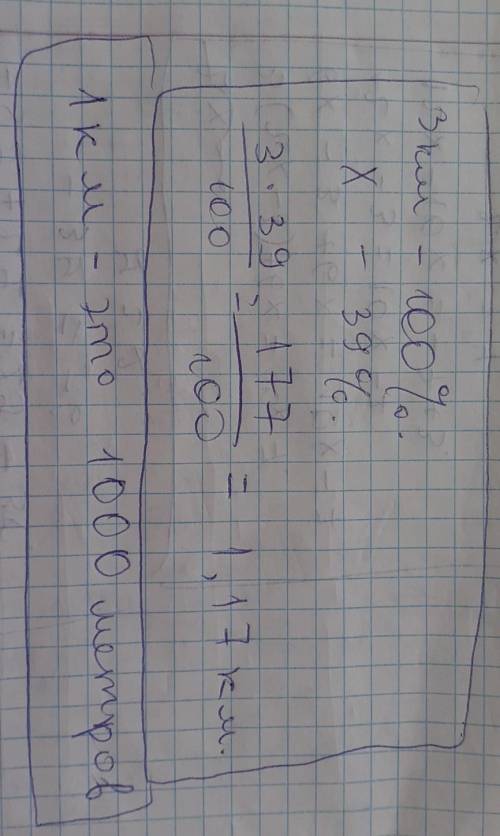 3 км - 100%.
х - 39%.
3 · 39 / 100 = 177 / 100 = 1,17 км.
1 км - это 1000 метров